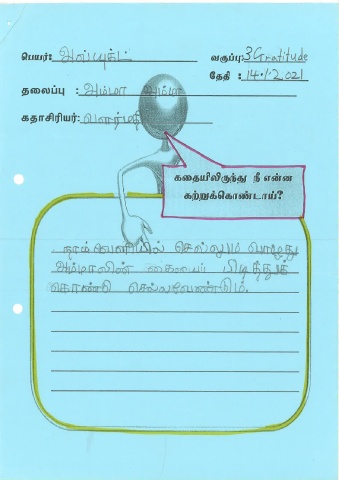 பெயர்: அஸ்யுக்ட் வகுப்பு: 3Gratitude
தேதி : 14.1.2021
தலைப்பு : அம்மா அம்மா
கதாசிரியர்: வளர்மதி
கதையிலிருந்து நீ என்ன
கற்றுக்கொண்டாய்?
நாம் வெளியில் செல்லும் பொழுது
அம்மாவின் கையைப் பிடித்துக்
கொண்டு செல்லவேண்டும்.